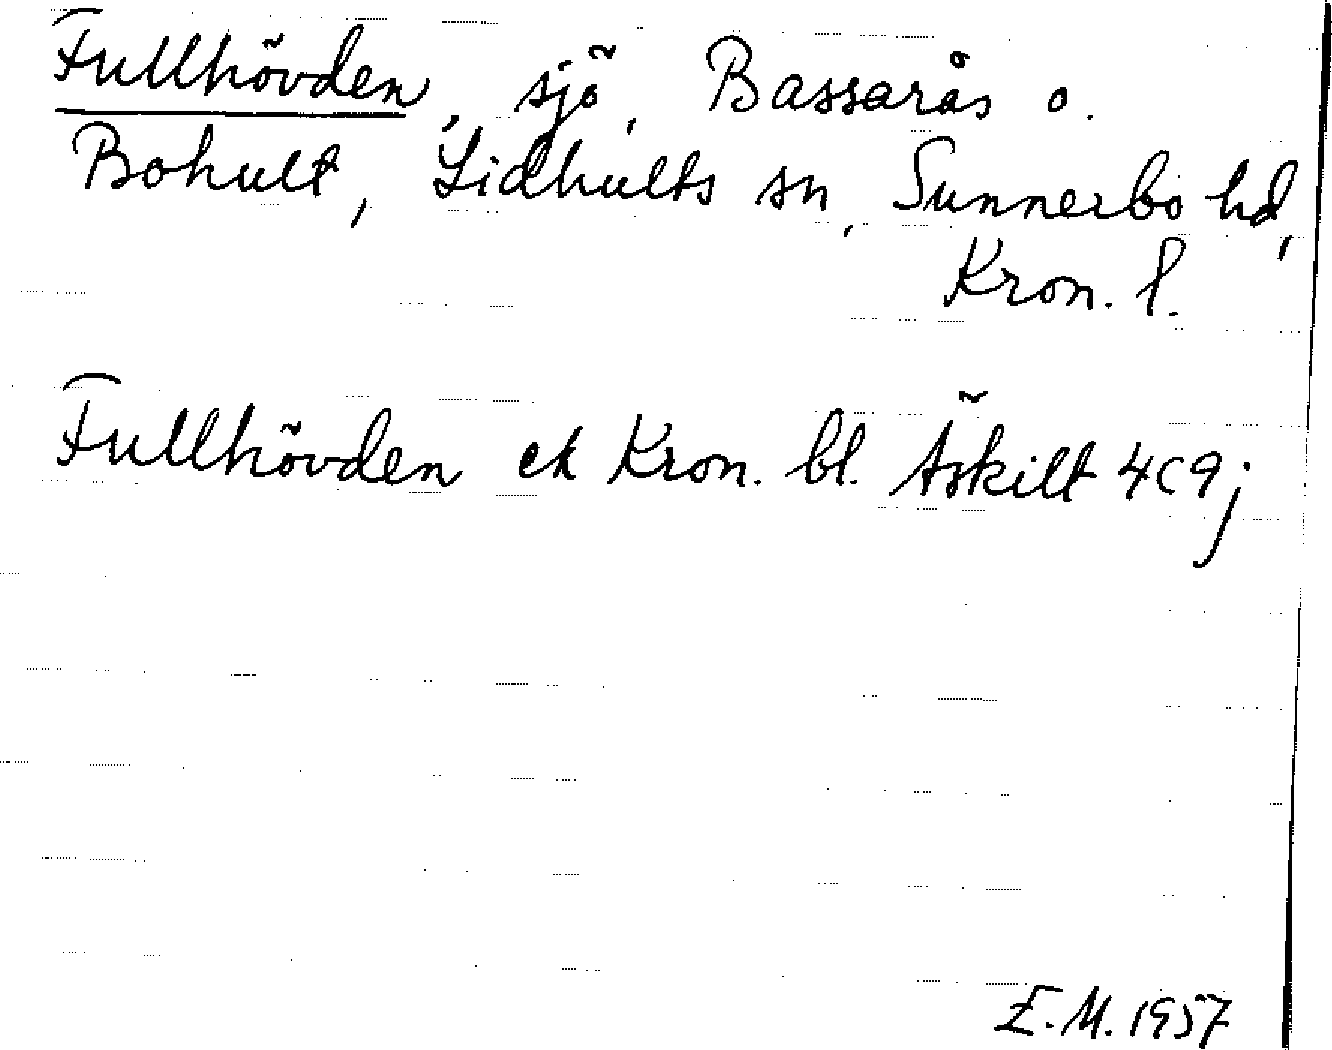 Fullhövden, sjö, Bassarås o.
Bohult, Lidhults sn, Sunnerbo hd,
Kron. l.
Fullhövden ek Kron. bl. Äskilt 4c9j
E.M. 1957